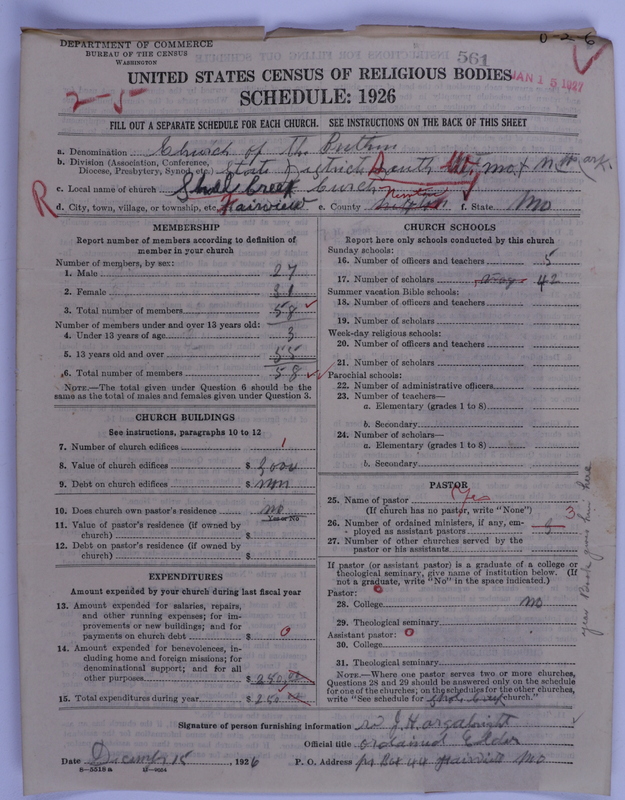 DEPARTMENT OF COMMERCE
BUREAU OF THE CENSUS
WASHINGTON
0-2-6
561
JAN 15 1927
UNITED STATES CENSUS OF RELIGIOUS BODIES
2-5
SCHEDULE: 1926
FILL OUT A SEPARATE SCHEDULE FOR EACH CHURCH. SEE INSTRUCTIONS ON THE BACK OF THIS SHEET
a. Denomination Church of the Brethren
b. Division (Association, Conference, Diocese, Presbytery, Synod, etc.) State District South Mo. & N W Ark.
c. Local name of church Shoal Creek Church
R
d. City, town, village, or township, etc. Fairview e. County Newton f. State Mo
MEMBERSHIP
Report number of members according to definition of member in your church
Number of members, by sex:
1. Male 27
2. Female 31
3. Total number of members 58
Number of members under and over 13 years old:
4. Under 13 years of age 3
5. 13 years old and over 55
6. Total number of members 58
NOTE.—The total given under Question 6 should be the same as the total of males and females given under Question 3.
CHURCH BUILDINGS
See instructions, paragraphs 10 to 12
7. Number of church edifices 1
8. Value of church edifices $ 3000
9. Debt on church edifices $ non
10. Does church own pastor's residence no
Yes or No
11. Value of pastor's residence (if owned by church) $
12. Debt on pastor's residence (if owned by church) $
EXPENDITURES
Amount expended by your church during last fiscal year
13. Amount expended for salaries, repairs, and other running expenses; for improvements or new buildings; and for payments on church debt $ 0
14. Amount expended for benevolences, including home and foreign missions; for denominational support; and for all other purposes $ 250.00
15. Total expenditures during year $ 250
CHURCH SCHOOLS
Report here only schools conducted by this church
Sunday schools:
16. Number of officers and teachers 5
17. Number of scholars 42
Summer vacation Bible schools:
18. Number of officers and teachers
19. Number of scholars
Week-day religious schools:
20. Number of officers and teachers
21. Number of scholars
Parochial schools:
22. Number of administrative officers
23. Number of teachers—
a. Elementary (grades 1 to 8)
b. Secondary
24. Number of scholars—
a. Elementary (grades 1 to 8)
b. Secondary
PASTOR
25. Name of pastor Yes
(If church has no pastor, write "None") 3
26. Number of ordained ministers, if any, employed as assistant pastors
27. Number of other churches served by the pastor or his assistants
If pastor (or assistant pastor) is a graduate of a college or theological seminary, give name of institution below. (If not a graduate, write "No" in the space indicated.)
Pastor: 0
28. College no
29. Theological seminary
Assistant pastor: 0
30. College
31. Theological seminary
NOTE.—Where one pastor serves two or more churches, Questions 28 and 29 should be answered only on the schedule for one of the churches; on the schedules for the other churches, write "See schedule for Shoal Creek church."
Signature of person furnishing information J. H. Argabright
Official title ordained Elder
Date December 15, 1926 P. O. Address Box 44 Fairview Mo
8—5518 a